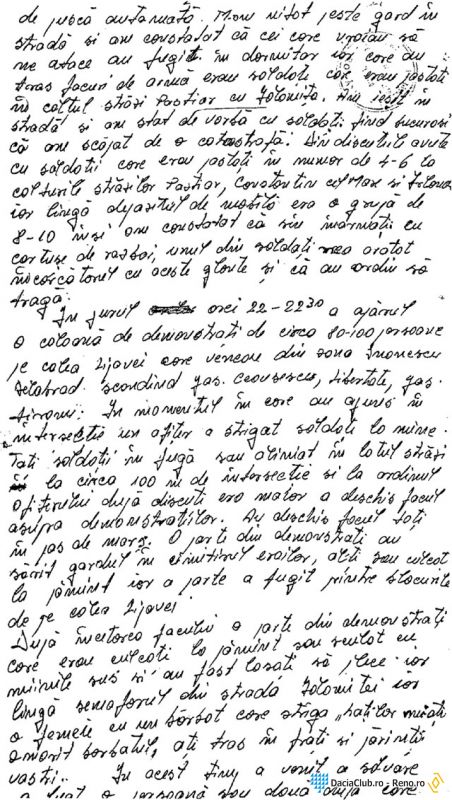 de pușcă automată. M-am uitat peste gard în
stradă și am constatat că cei care vroiau să
ne atace au fugit în dormitor iar care au
tras focuri de armă erau soldați care erau postați
în colțul străzi Pasteur cu Ialomita. Am ieșit în
stradă și am stat de vorbă cu soldații fiind bucuroși
că am scăpat de o catastrofă. Din discutiile avute
cu soldații care erau postați în numar de 4-6 la
colturile străzilor Pastiar, Constantin cel Mare si Ialomi
iar lîngă depozitul de mobilă era o grupă de
8-10 înși am constatat că sin înarmați cu
cartușe de razboi, unul din soldați mea aratat
încarcătorul cu aceste gloante și că au ordin să
tragă.
In jurul orei 22-22³⁰ a apărut
o coloană de demonstrati de circa 80-100 persoane
pe calea Lipovei care veneau din zona Ionescu
scandînd jos. Ceausescu, libertate, jos.
tiranu. In momentul în care au ajuns în
intersectie un ofiter a strigat soldati la mine.
Toti soldații în fugă sau aliniat în latul străzi
la circa 100 m de intersectie si la ordinul
ofiterului după discuti era maior a deschis focul
asupra demonstratilor. Au deschis focul toți
în jos de mars. O parte din demonstrati au
sărit gardul în cimitirul eroilor, alti sau culcat
la pămînt iar a parte a fugit printre blocurile
de pe calea Lipovei
După încetarea focului o parte din demonstrați
care erau culcati la pămînt sau sculat cu
miinile sus si au fost lasati să plece iar
lingă semaforul din strada Ialomitei iar
o femeie cu un bărbat care striga „hatilor miati
omorît barbatul, ati tras în frati si părintii
vostri". In acest timp a venit o salvare
a luat o persoană sau două după care
DaciaClub.ro - Reno.ro